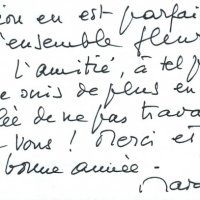 ion en est parfai
'ensemble fleur
l'amitié, à tel p
e suis de plus en
lée de ne pas trava
-vous ! Merci et
bonne année -